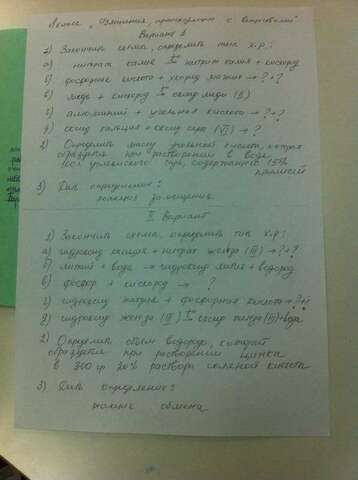 8 класс „Изменения, происходящие с веществами"
Вариант I
1) Закончить схемы, определить тип х.р.:
а) нитрат калия t→ нитрит калия + кислород
б) фосфорная кислота + хлорид магния → ? + ?
в) медь + кислород t→ оксид меди (II)
г) алюминий + соляная кислота → ? + ?
д) оксид кальция + оксид серы (VI) → ?
2) Определить массу угольной кислоты, которая
образуется при растворении в воде
содержащего 15%
примесей
3) Дать определение:
реакция замещения
II Вариант
1) Закончить схемы, определить тип х.р.:
а) гидроксид кальция + нитрат железа (III) → ? + ?
б) литий + вода → гидроксид лития + водород
в) фосфор + кислород → ?
г) гидроксид натрия + фосфорная кислота → ? + ?
д) гидроксид железа (III) t→ оксид железа (III) + вода
2) Определить объем водорода, который
образуется при растворении цинка
в 300 гр 20% раствора соляной кислоты
3) Дать определение:
реакция обмена